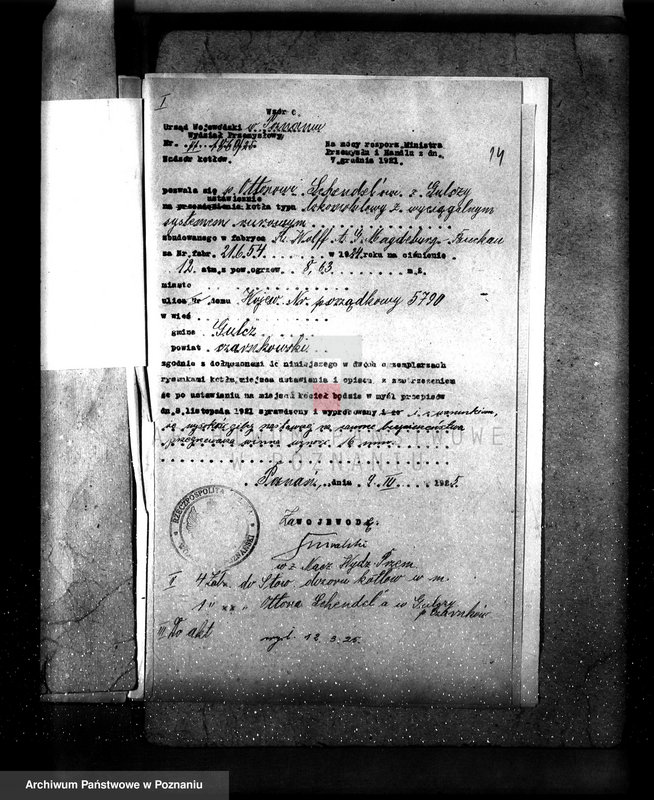 I
Wzór c.
Urząd Wojewódzki w Poznaniu
Wydział Przemysłowy
Nadzór kotłów.
Na mocy rozporz. Ministra
Przemysłu i Handlu z dn.
7 grudnia 1921.
14
pozwala się p. Ottonowi Schendel'owi z Gulczy
ustawienie
na kotła typu lokomobilowy z wyciągalnym
systemem rurowym
zbudowanego w fabryce R. Wolff A. G. Magdeburg-Buckau
za Nr. fabr. 21654 w 1924 roku na ciśnienie
12 atm. z pow. ogrzew. 8,63 m.2
miasto
ulica Nr. domu Nr. porządkowy 5790
w wsi
gmine Gulcz
powiat czarnkowski
zgodnie z dołączonemi do niniejszego w dwóch egzemplarzach
rysunkami kotła, miejsca ustawienia i opisem, z zastrzeżeniem
że po ustawieniu na miejscu kocioł będzie w myśl przepisów
dn. 8. listopada 1921 sprawdzony i wypróbowany
wynosić 16 mm.
Poznań, dnia 9 III 1925.
Za WOJEWODĘ:
w z Nacz Wydz Przem
II 4 Zał. do Stow. dozoru kotłów w m.
1 " " " Ottona Schendel'a w Gulczy
p. Czarnków
III Do akt
wysł. 12.3.25.
RZECZPOSPOLITA
ARCHIWUM PAŃSTWOWE
W POZNANIU
Archiwum Państwowe w Poznaniu